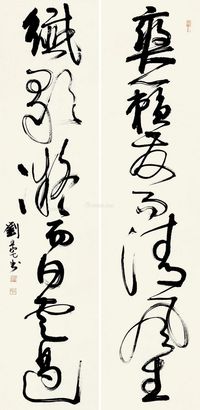 爽籟發而清風生
纖歌凝而白雲遏
劉